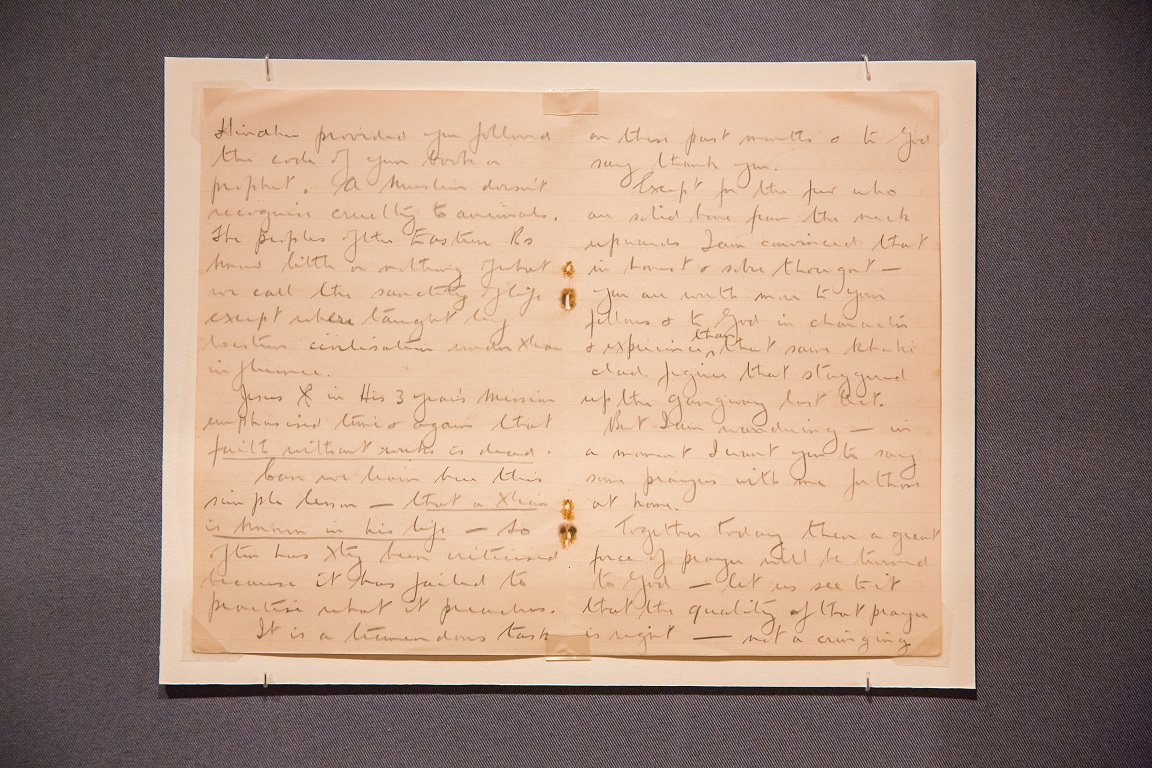 Hindhu provided you followed
the code of your book or
prophet. A Muslim doesn't
recognise cruelty to animals.
The peoples of the Eastern
know little or nothing of what
we call the sanctity of life
except where taught by
western civilisation under Xtian
influence.
Jesus X in His 3 years Mission
emphasised time & again that
faith without works is dead.
Can we learn but this
simple lesson — that a Xtian
is known in his life — So
often has Xty been criticised
because it has failed to
practise what it preaches.
It is a tremendous task
on these past months & to God
say thank you.
Except for the few who
are solid bone from the neck
upwards I am convinced that
in honest & sober thought —
you are worth more to your
fellows & to God in character
& experience, than that same khaki
clad figure that staggered
up the gangway last Oct.
But I am wandering — in
a moment I want you to say
some prayers with me for those
at home.
Together today then a great
force of prayer will be turned
to God — let us see to it
that the quality of that prayer
is right — not a cringing